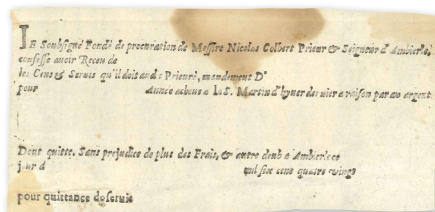 IE Soubsigné Fondé de procuration de Messire Nicolas Colbert Prieur & Seigneur d'Ambierle,
confesse auoir Receu de
les Cens & Seruis qu'il doit aud. Prieuré, mandement D'
pour Année acheue a la S. Martin d'hyuer dernier a raison par av argent
Dont quitte, Sans prejudice de plus des Frais, & autre deub a Ambierle ce
jour d mil six cens quatre vings
pour quittance de seruis